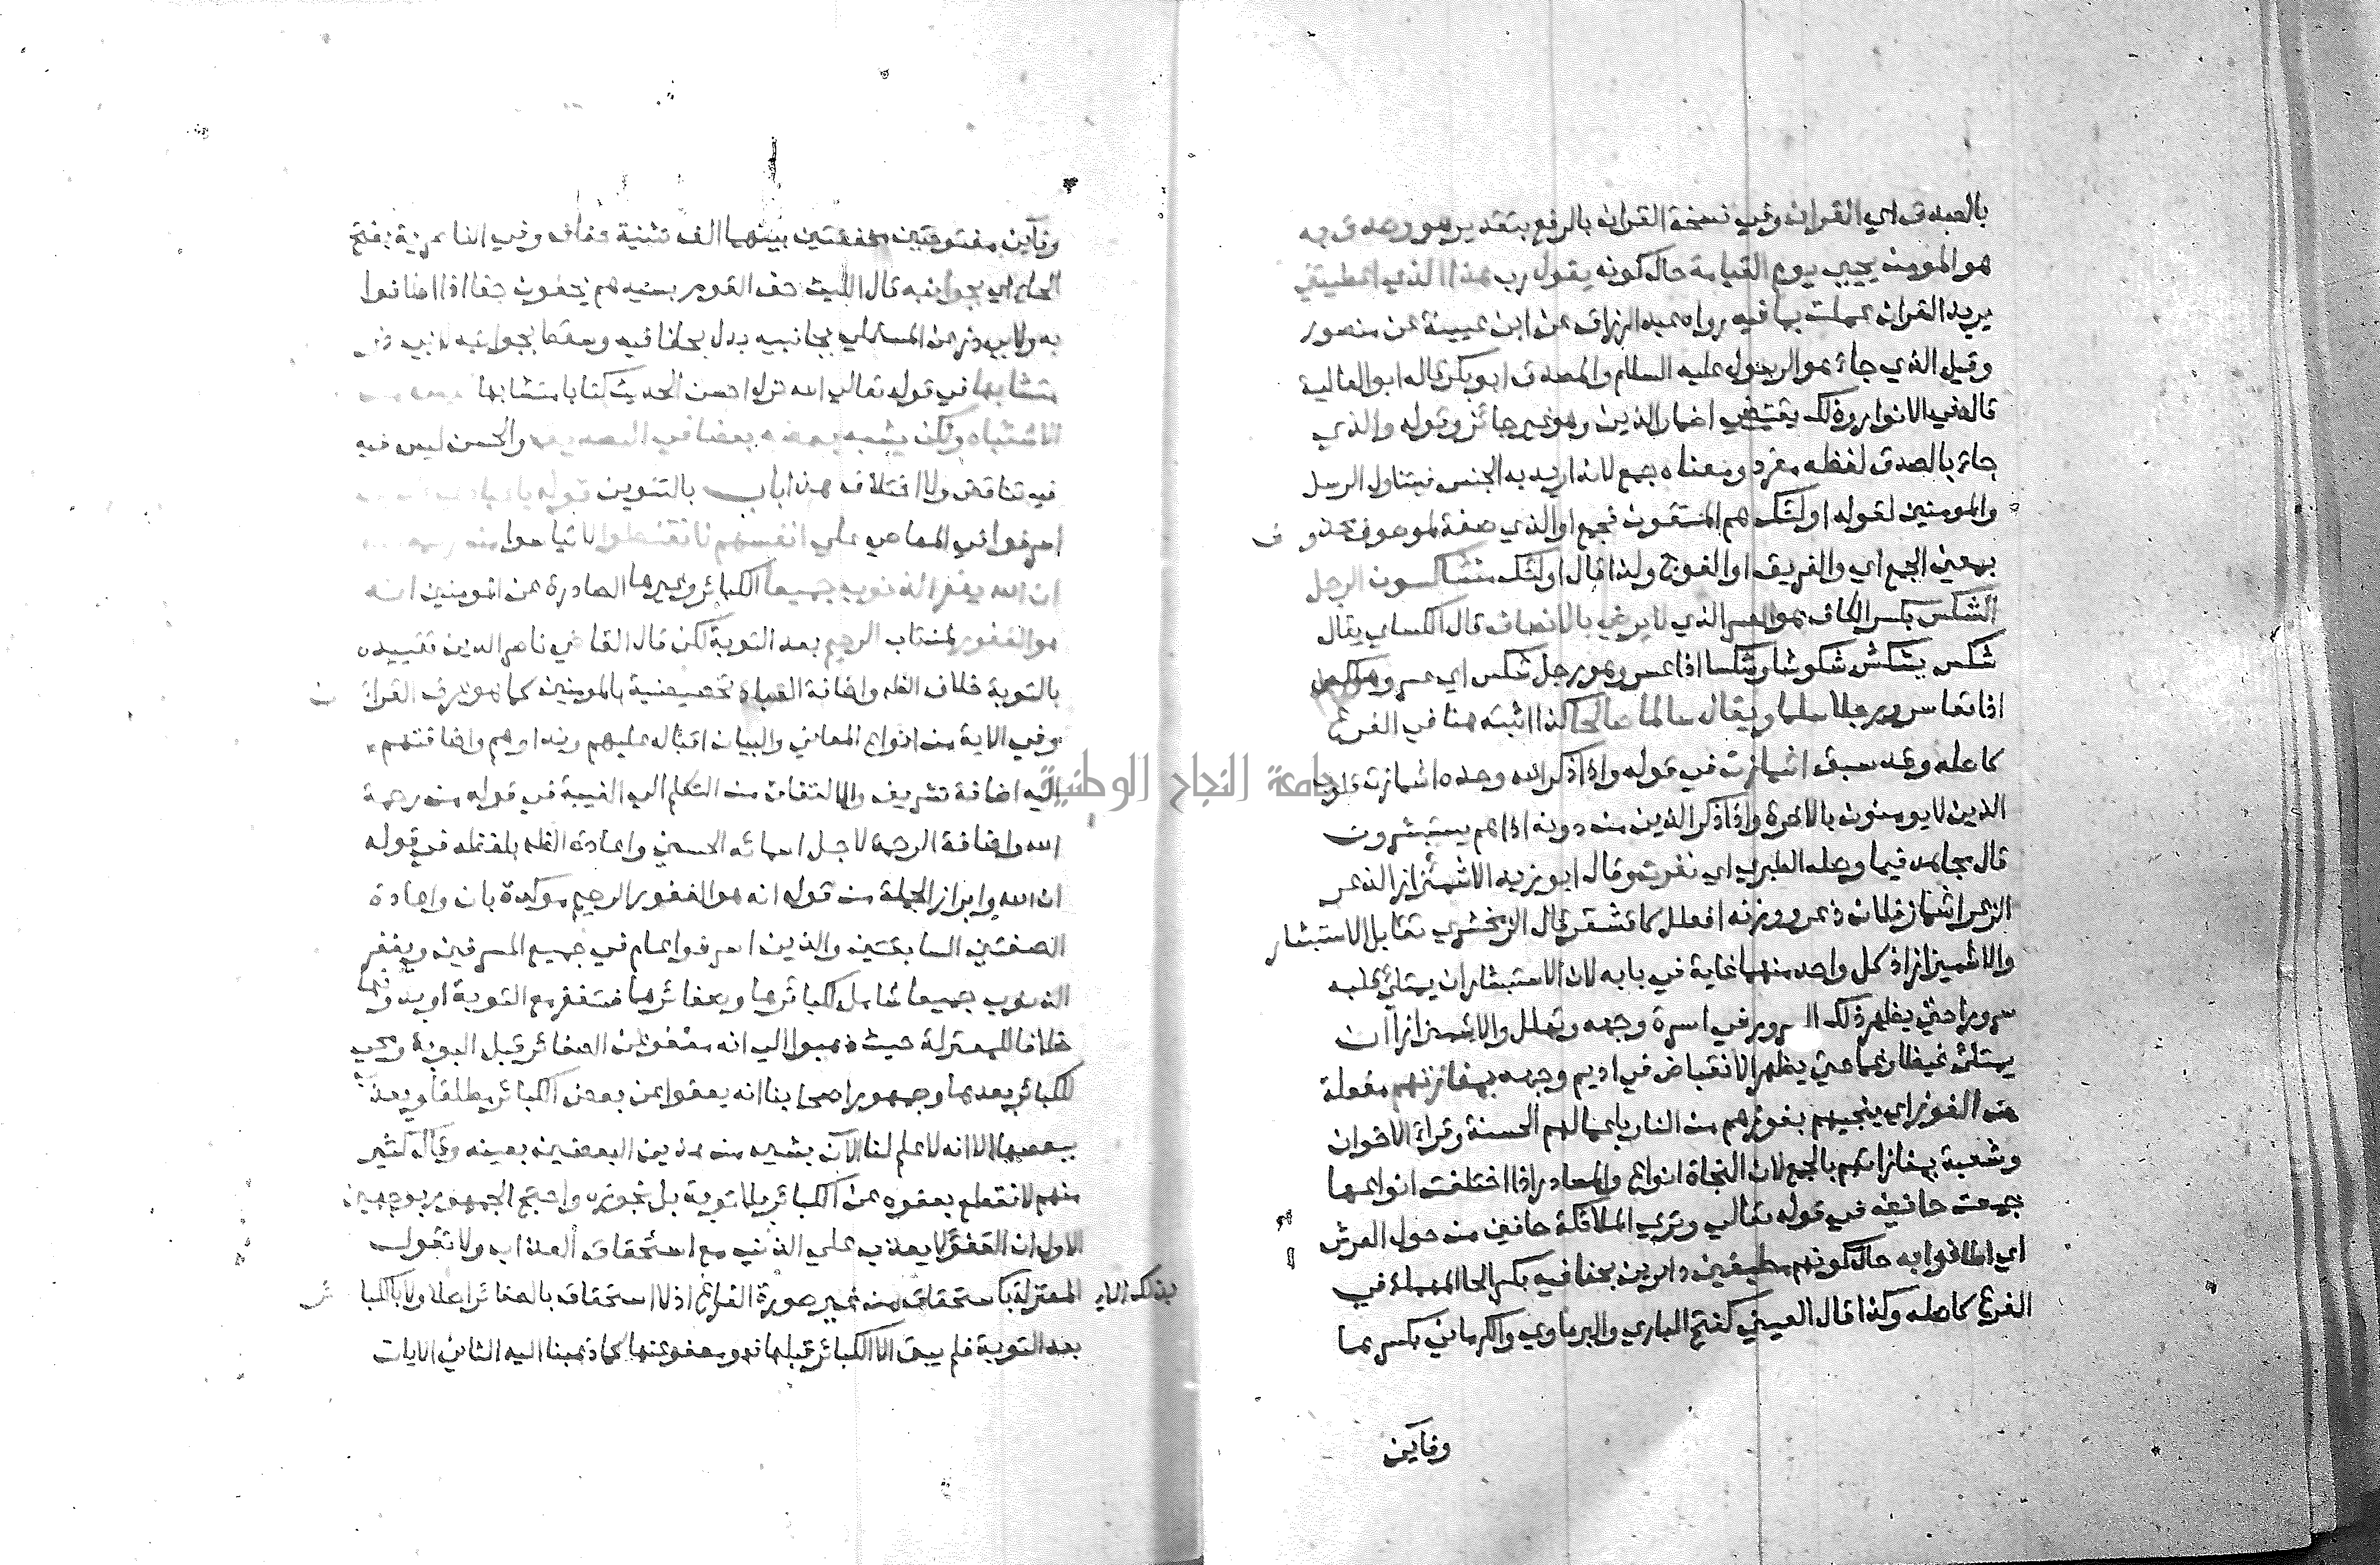 بالصدق اي القران وفي نسخة القران بالرفع بتقدير هو وصدق به
هو المومن يجيي يوم القيامة حال كونه يقول رب هذا الذي اعطيتني
يريد القران عملت بما فيه رواه عبد الرزاق عن ابن عيينة عن منصور
وقيل الذي جاء هو الرسول عليه السلام والمصدق ابو بكر قاله ابو العالية
قال في الانوار وذلك يقتضي اضمار الذين وهو غير جائز وقوله والذي
جاء بالصدق لفظه مفرد ومعناه جمع لانه اريد به الجنس فيتناول الرسل
والمومنين لقوله اولئك هم المتقون فجمع او الذي صفة لموصوف محذوف
بمعني الجمع اي والفريق او الفوج ولذا قال اولئك متشاكسون الرجل
الشكس بكسر الكاف هو العسر الذي لا يرضي بالانصاف قال الكسائي يقال
شكس يشكس شكوسا وشكسا اذا عسر وهو رجل شكس اي عسر
اذا تعاسر ورجلا سلما ويقال سالما صالحا كذا اثبته هنا في الفرع
كاصله وقد سبق اشمازت في قوله واذا ذكر الله وحده اشمازت قلوب
الذين لا يومنون بالاخرة واذا ذكر الذين من دونه اذا هم يستبشرون
قال مجاهد فيما وصله الطبري اي نفرت وقال ابو زيد الاشمئزاز الذعر
اشماز فلان ذعر ووزنه افعلل كاقشعر قال الزمخشري تقابل الاستبشار
والاشميزاز اذ كل واحد منهما غاية في بابه لان الاستبشار ان يمتلي قلبه
سرورا حتي يظهر ذلك السرور في اسرة وجهه وتهلل والاشميزاز ان
يمتلئ غيظا وغما حتي يظهر الانقباض في اديم وجهه بمفازتهم مفعلة
من الفوز اي ينجيهم بفوزهم من النار باعمالهم الحسنة وقراء الاخوان
وشعبة بمفازاتهم بالجمع لان النجاة انواع والمصادر اذا اختلفت انواعها
جمعت حافين في قوله تعالي وتري الملائكة حافين من حول العرش
اي اطافوا به حال كونهم مطيفين دايرين بحفافيه بكسر الحا المهملة في
الفرع كاصله وكذا قال العيني كفتح الباري والبرماوي والكرماني بكسرها
وفاين
وفاين مفتوحتين مخففتين بينهما الف تثنية حفاف وفي الناصرية بفتح
الحا اي بجوانبه قال الليث حف القوم بسيدهم يحفون حفا اذا اطافوا
به ولابي ذر عن المستملي بجانبيه بدل بحفافيه وبعضها بجوانبه
متشابها في قوله تعالي الله نزل احسن الحديث كتابا متشابها
الاشتباه ولكن يشبه بعضه بعضا في التصديق والحسن ليس فيه
فيه تناقض ولا اختلاف هذا باب بالتنوين قوله يا عبادي
اسرفوا في المعاصي علي انفسهم لا تقنطوا لا تياسوا من
ان الله يغفر الذنوب جميعا الكبائر وغيرها الصادرة عن المومنين انه
هو الغفور لمن تاب الرحيم بعد التوبة لكن قال القاضي ناصر الدين تقييده
بالتوبة خلاف الظاهر واضافة العباد تخصيصية بالمومنين كما هو عرف القران
وفي الاية من انواع المعاني والبيان اقباله عليهم ونداوهم واضافتهم
اليه اضافة تشريف والالتفات من التكلم الي الغيبة في قوله من رحمة
الله واضافة الرحمة لاجل اسمائه الحسني واعادة الظاهر بلفظه في قوله
ان الله وابراز الجملة من قوله انه هو الغفور الرحيم موكدة بان واعادة
الصفتين السابقتين والذين اسرفوا عام في جميع المسرفين ويغفر
الذنوب جميعا شامل لكبائرها وصغائرها فتغفر مع التوبة او بدونها
خلافا للمعتزلة حيث ذهبوا الي انه يعفو عن الصغائر قبل التوبة وعن
الكبائر بعدها وجمهور اصحابنا انه يعفو عن بعض الكبائر مطلقا ويعذب
ببعضها الا انه لا علم لنا الان بشيء من هذين البعضين بعينه وقال كثير
منهم لا نقطع بعفوه عن الكبائر بلا توبة بل نجوزه واحتج الجمهور بوجهين
الاول ان العفو لا يعذب علي الذنب مع استحقاق العذاب ولا تقول
المعتزلة بذلك الاستحقاق من غير صورة النزاع اذ لا استحقاق بالصغائر اصلا ولا بالكبائر
بعد التوبة فلم يبق الا الكبائر قبلها فهو يعفو عنها كما ذهبنا اليه الثاني الايات
جامعة النجاح الوطنية